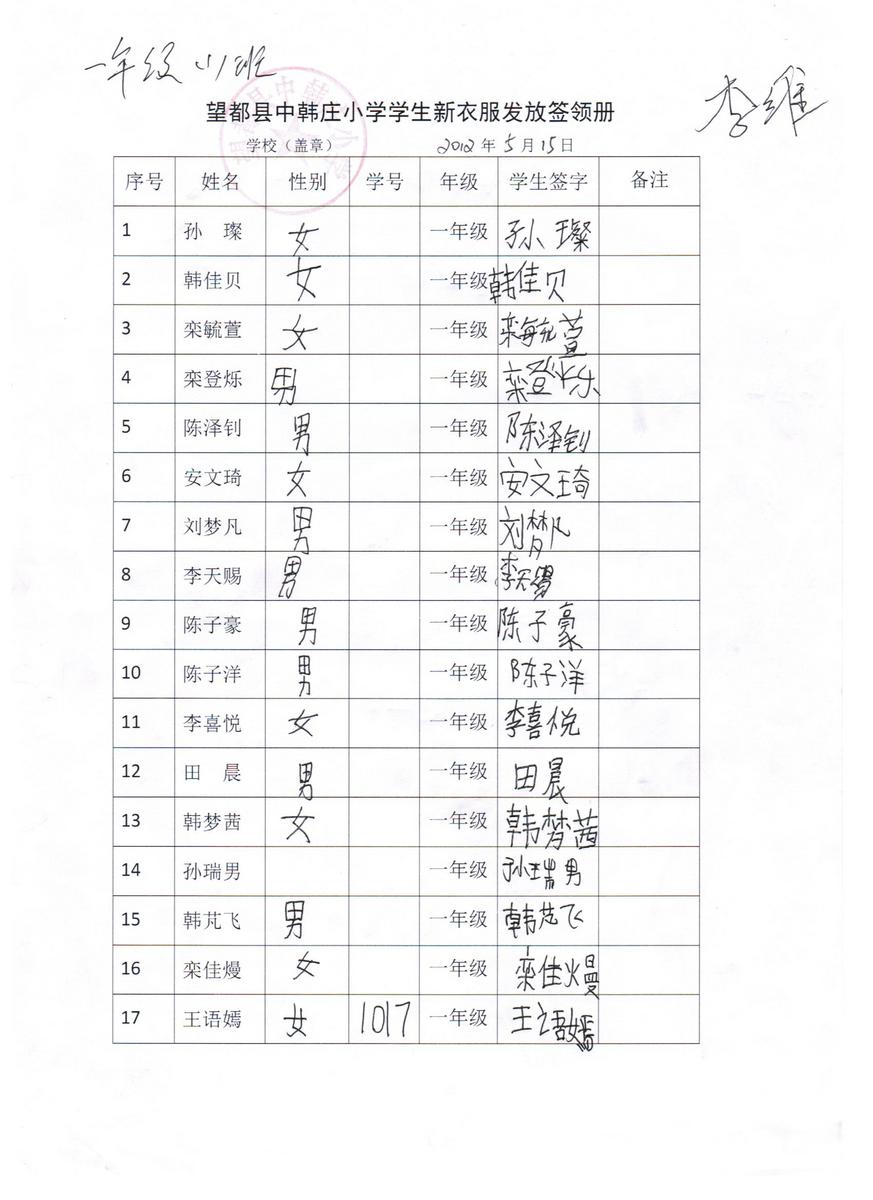 一年级(1)班
李维
望都县中韩庄小学学生新衣服发放签领册
学校（盖章） 2012年5月15日
序号 姓名 性别 学号 年级 学生签字 备注
1 孙 璨 女 一年级 孙璨
2 韩佳贝 女 一年级 韩佳贝
3 栾毓萱 女 一年级 栾毓萱
4 栾登烁 男 一年级 栾登烁
5 陈泽钊 男 一年级 陈泽钊
6 安文琦 女 一年级 安文琦
7 刘梦凡 男 一年级 刘梦凡
8 李天赐 男 一年级 李天
9 陈子豪 男 一年级 陈子豪
10 陈子洋 男 一年级 陈子洋
11 李喜悦 女 一年级 李喜悦
12 田 晨 男 一年级 田晨
13 韩梦茜 女 一年级 韩梦茜
14 孙瑞男 一年级 孙瑞男
15 韩芃飞 男 一年级 韩芃飞
16 栾佳熳 女 一年级 栾佳熳
17 王语嫣 女 1017 一年级 王语嫣